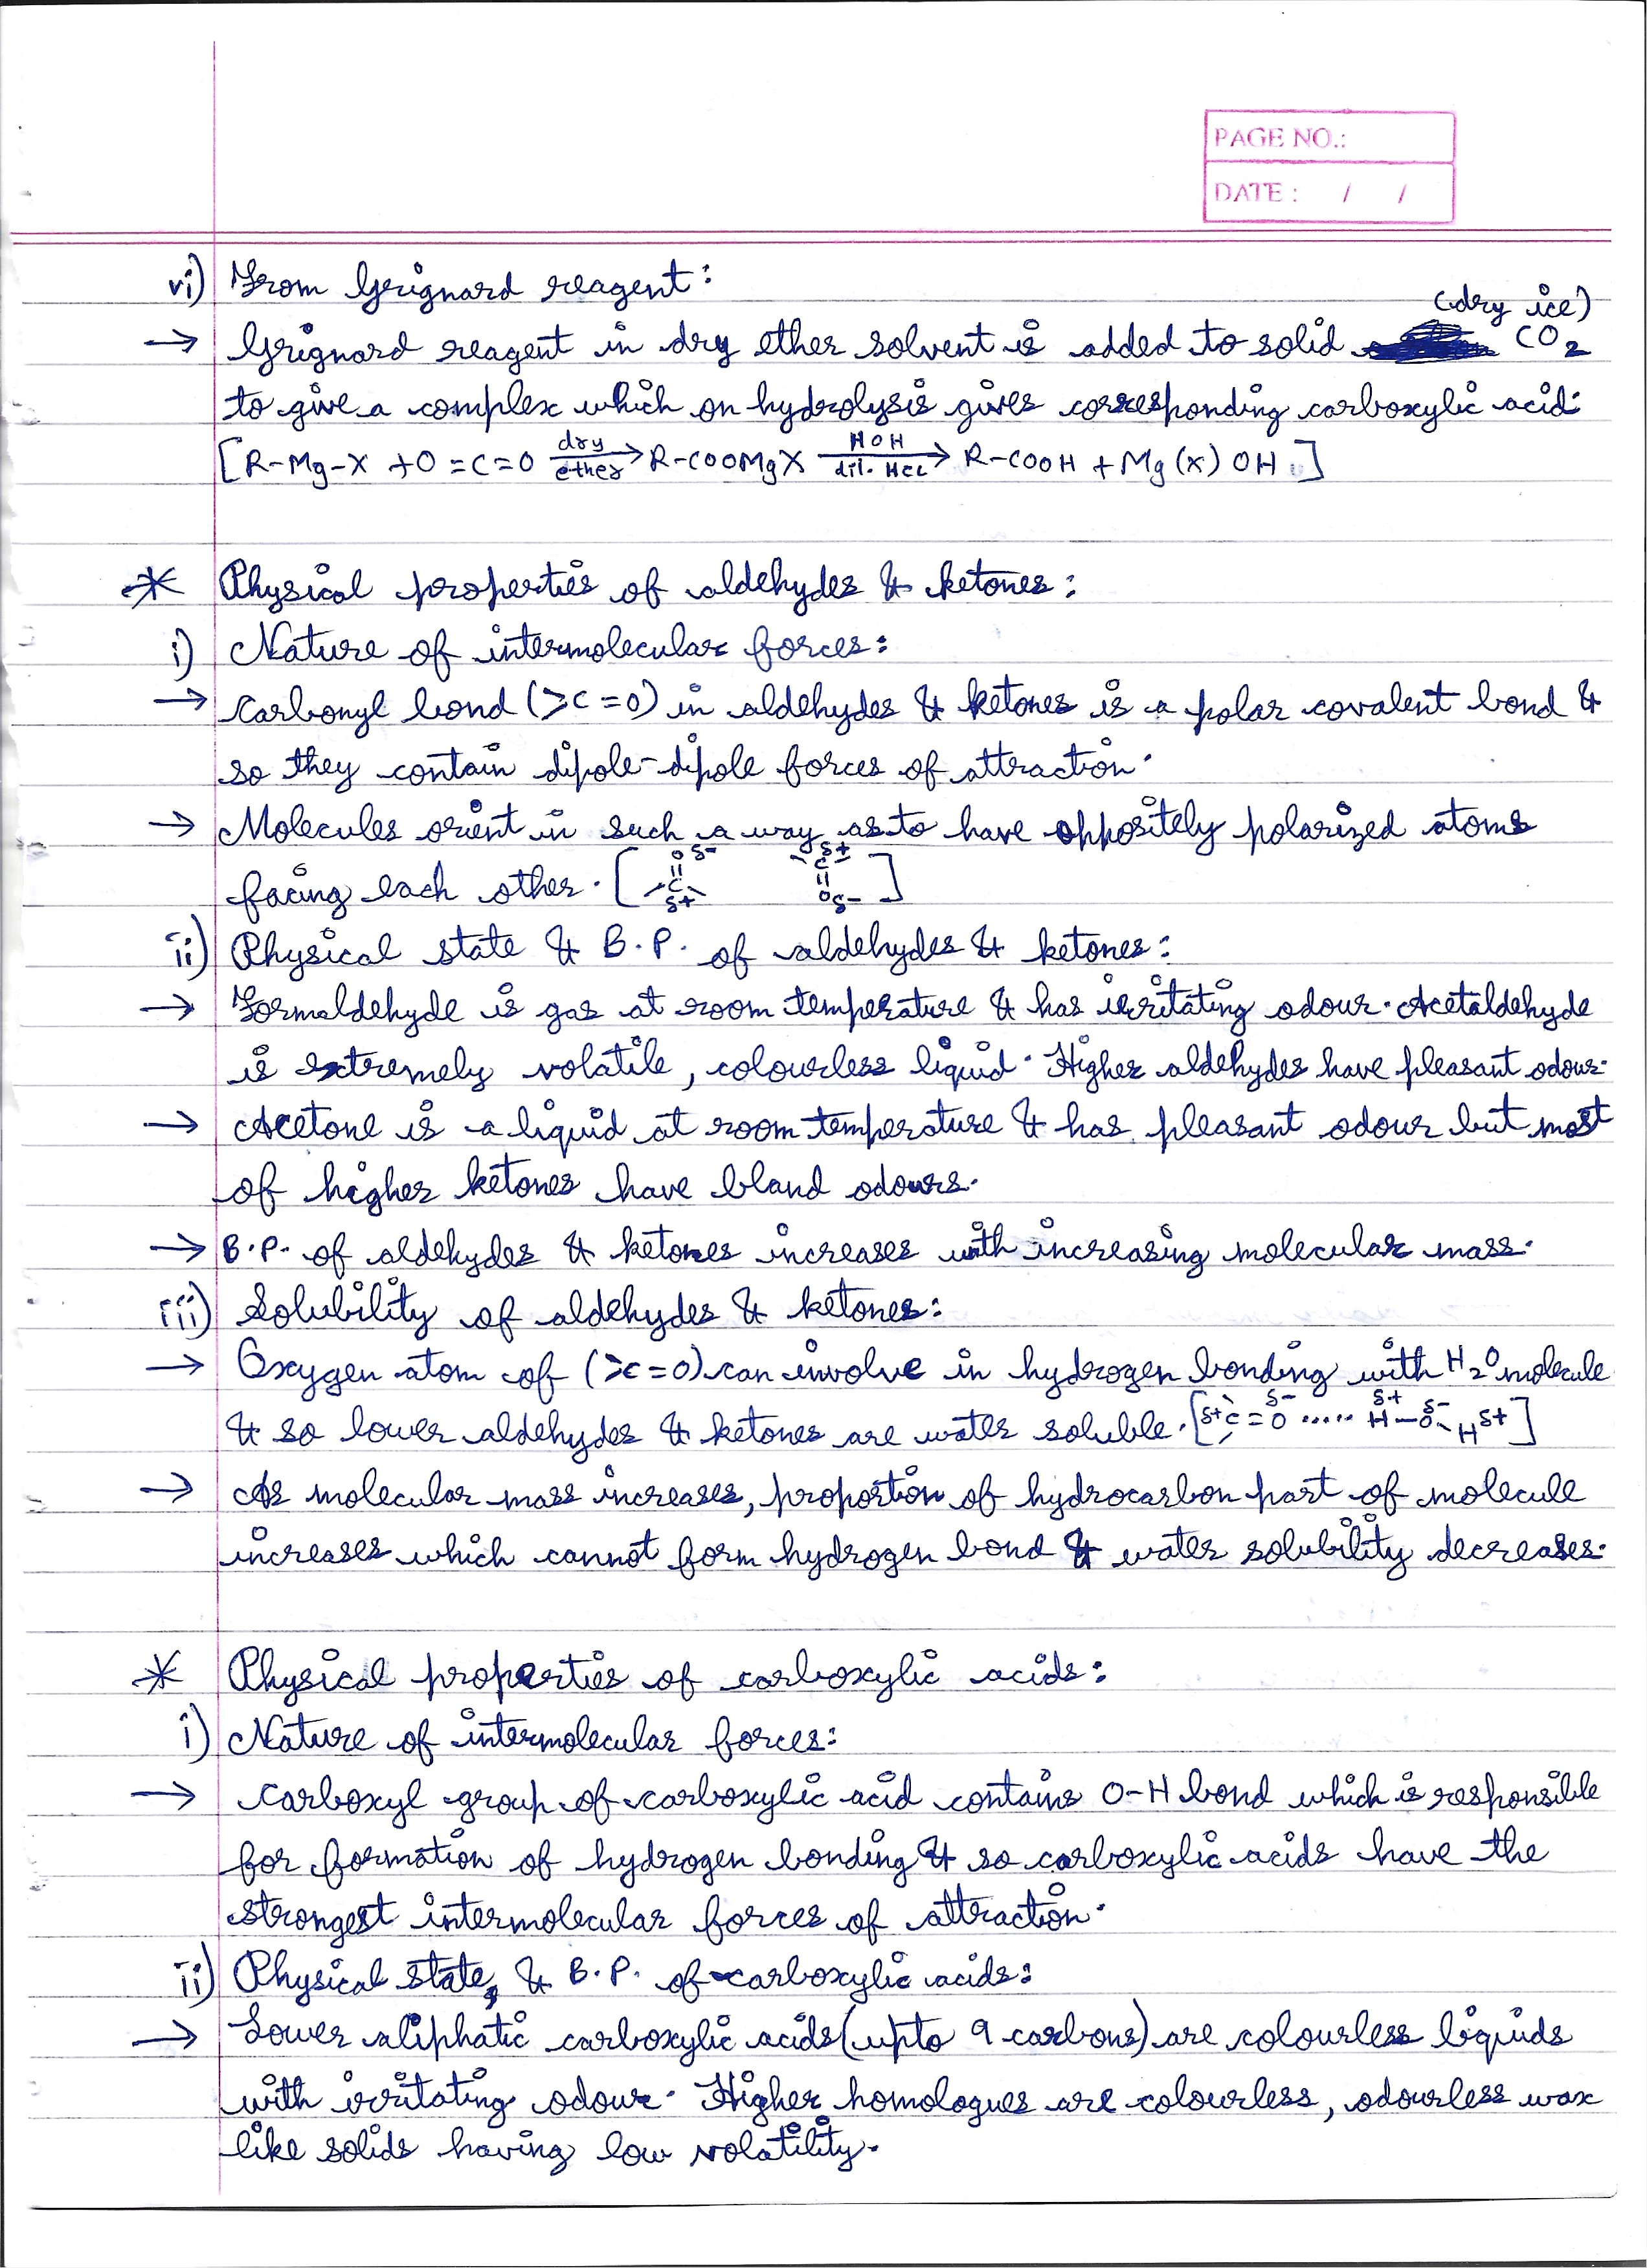 PAGE NO.:
DATE : / /
vi) From Grignard reagent:
(dry ice)
→ Grignard reagent in dry ether solvent is added to solid CO2
to give a complex which on hydrolysis gives corresponding carboxylic acid.
[R-Mg-X + O=C=O dry ether → R-COOMgX HOH dil. HCl → R-COOH + Mg(X)OH.]
* Physical properties of aldehydes & ketones:
i) Nature of intermolecular forces:
→ Carbonyl bond (>C=O) in aldehydes & ketones is a polar covalent bond &
so they contain dipole-dipole forces of attraction.
→ Molecules orient in such a way as to have oppositely polarized atoms
facing each other. [O δ- = C δ+ C δ+ = O δ-]
ii) Physical state & B.P. of aldehydes & ketones:
→ Formaldehyde is gas at room temperature & has irritating odour. Acetaldehyde
is extremely volatile, colourless liquid. Higher aldehydes have pleasant odour.
→ Acetone is a liquid at room temperature & has pleasant odour but most
of higher ketones have bland odours.
→ B.P. of aldehydes & ketones increases with increasing molecular mass.
iii) Solubility of aldehydes & ketones:
→ Oxygen atom of (>C=O) can involve in hydrogen bonding with H2O molecule
& so lower aldehydes & ketones are water soluble. [δ+ C = O δ- ..... H δ+ - O δ- - H δ+]
→ As molecular mass increases, proportion of hydrocarbon part of molecule
increases which cannot form hydrogen bond & water solubility decreases.
* Physical properties of carboxylic acids:
i) Nature of intermolecular forces:
→ Carboxyl group of carboxylic acid contains O-H bond which is responsible
for formation of hydrogen bonding & so carboxylic acids have the
strongest intermolecular forces of attraction.
ii) Physical state, & B.P. of carboxylic acids:
→ Lower aliphatic carboxylic acids (upto 9 carbons) are colourless liquids
with irritating odour. Higher homologues are colourless, odourless wax
like solids having low volatility.